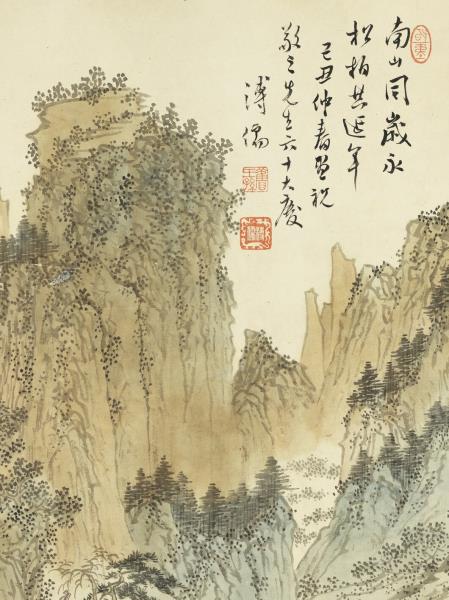 南山同歲永
松柏共延年
己丑仲春畫祝
敬之先生六十大慶
溥儒